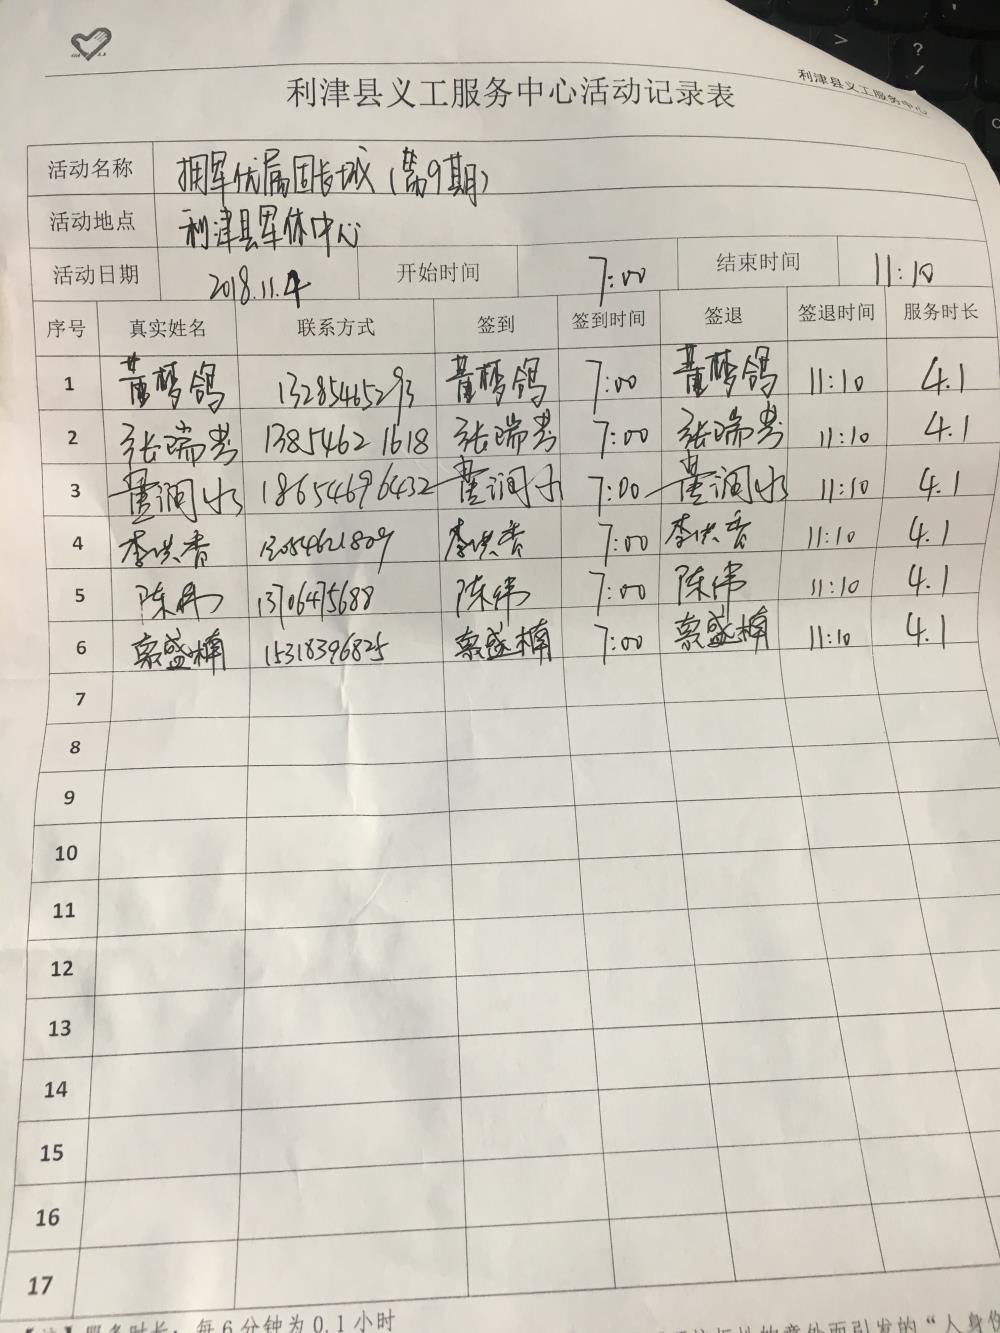 利津县义工服务中心
利津县义工服务中心活动记录表
活动名称 拥军优属固长城(第9期)
活动地点 利津县军休中心
活动日期 2018.11.4 开始时间 7:00 结束时间 11:10
序号 真实姓名 联系方式 签到 签到时间 签退 签退时间 服务时长
1 董梦鸽 13285465293 董梦鸽 7:00 董梦鸽 11:10 4.1
2 张瑞芸 13854621618 张瑞芸 7:00 张瑞芸 11:10 4.1
3 董润水 18654696432 董润水 7:00 董润水 11:10 4.1
4 李洪香 13054621809 李洪香 7:00 李洪香 11:10 4.1
5 陈伟 13706475688 陈伟 7:00 陈伟 11:10 4.1
6 盛楠 15318396825 盛楠 7:00 盛楠 11:10 4.1
7
8
9
10
11
12
13
14
15
16
17
服务时长:每6分钟为0.1小时
的意外而引发的“人身伤